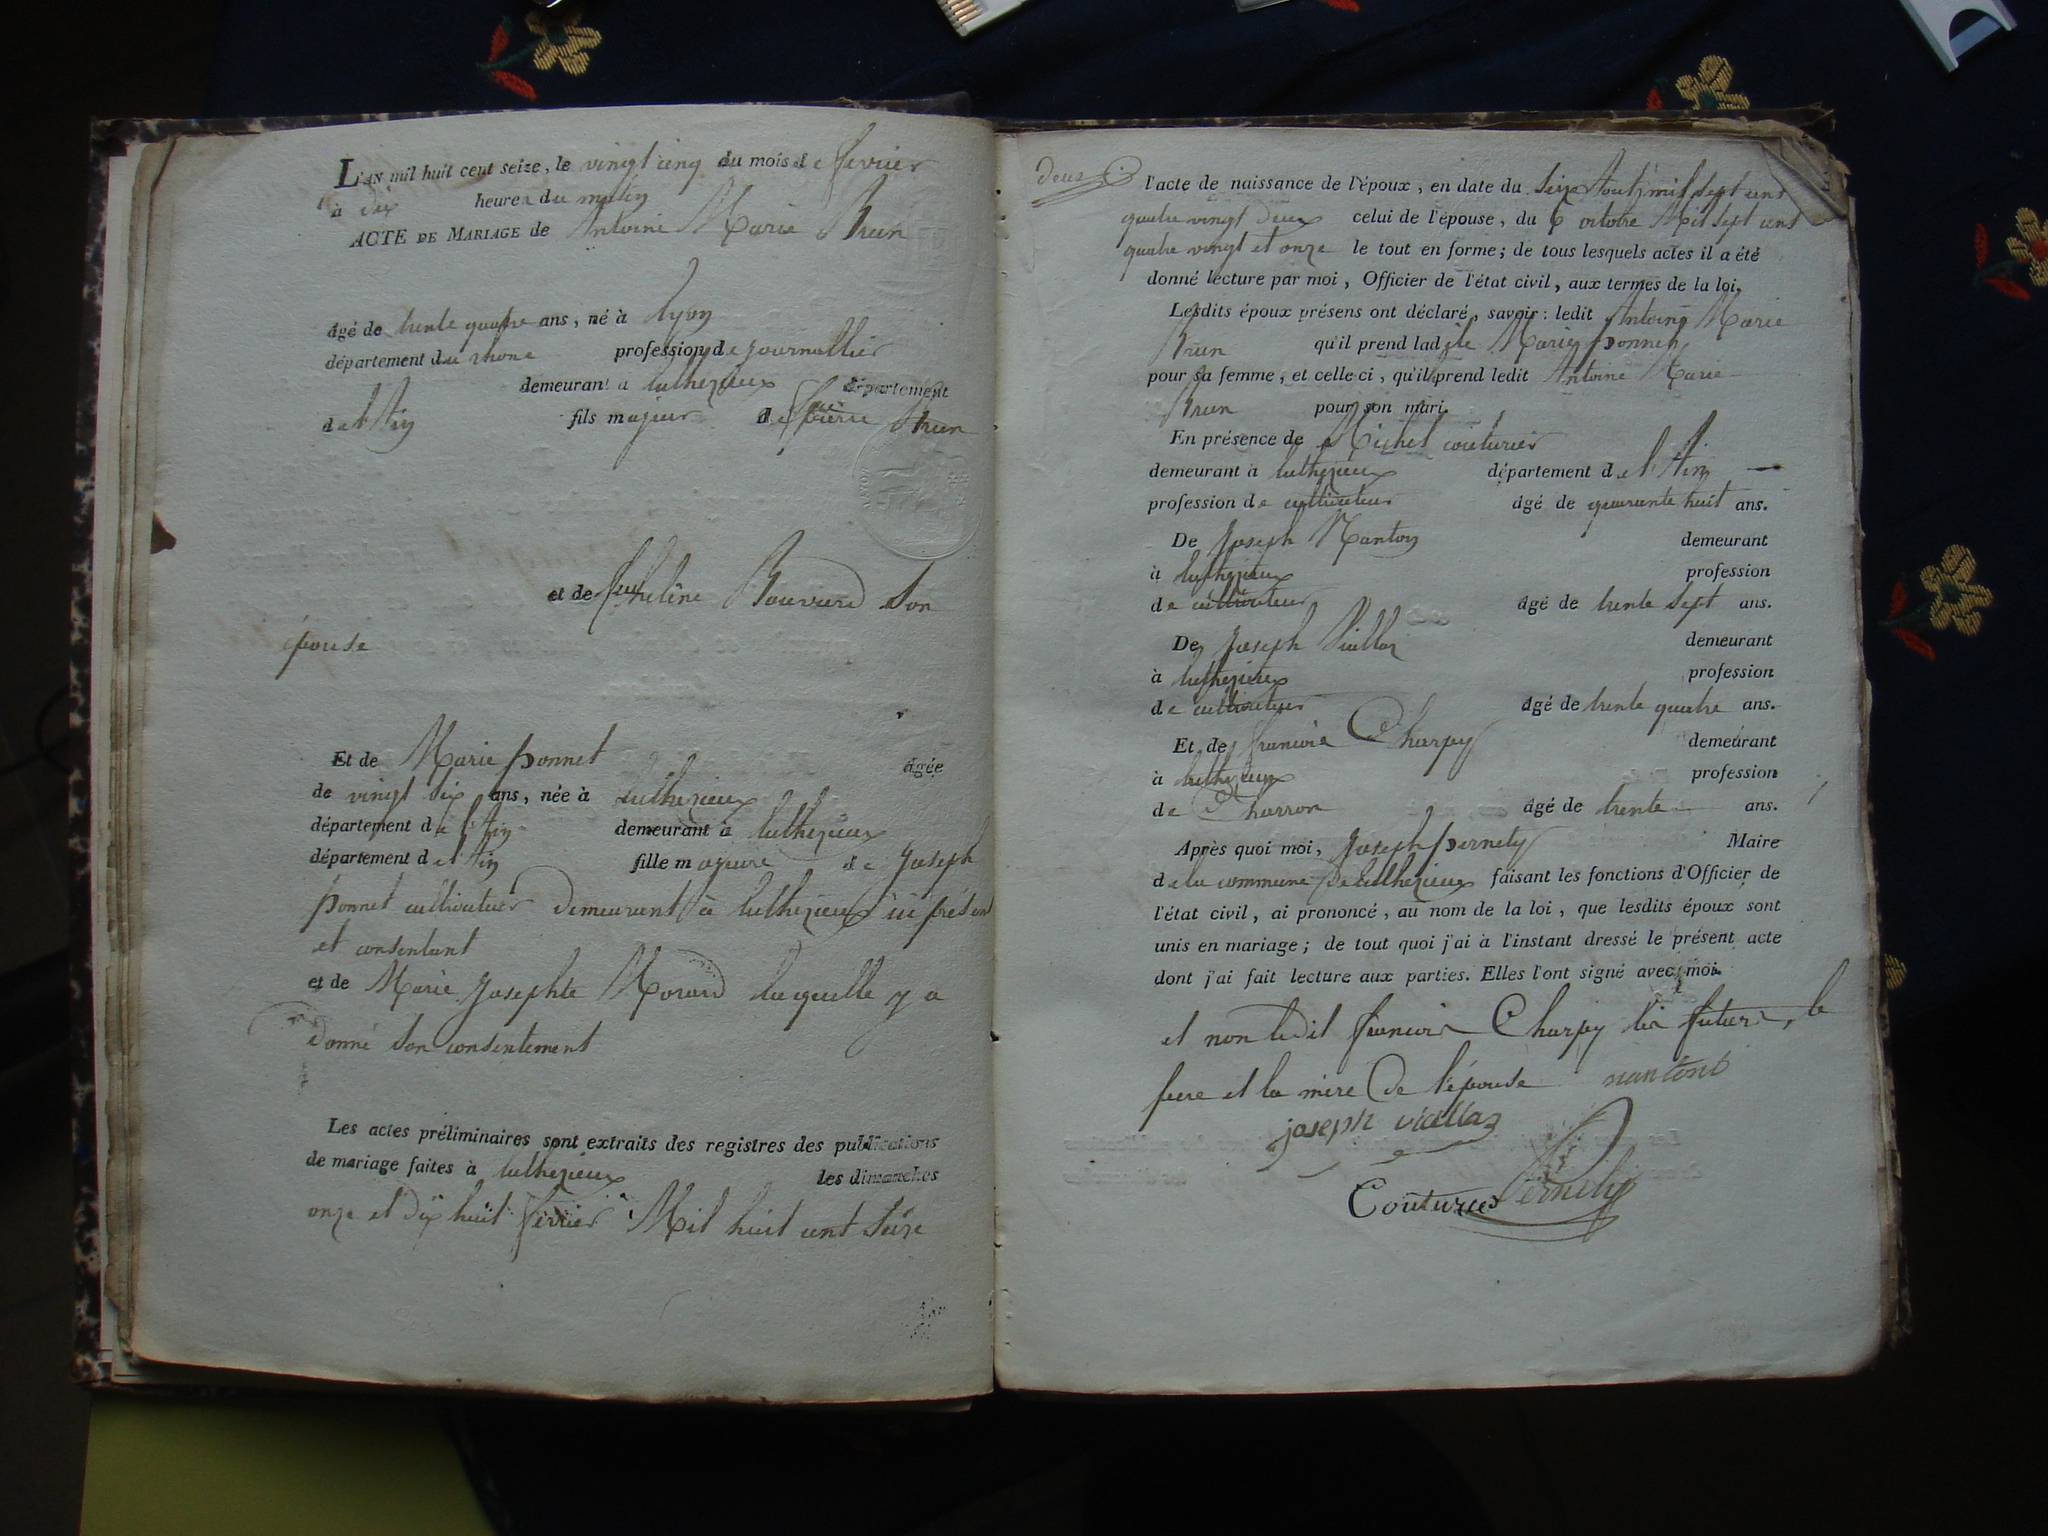 L'AN mil huit cent seize, le vingt cinq du mois de fevrier
à dix heures du matin
ACTE DE MARIAGE de Antoine Marie Brun
âgé de trente quatre ans, né à Lyon
département du rhone profession de journallier
demeurant à luthezieux département
de l'Ain fils majeur de feu pierre Brun
et de feu heléne Bouvard son
épouse
Et de Marie ponnet âgée
de vingt six ans, née à luthezieux
département de l'Ain demeurant à luthezieux
département de l'Ain fille majeure de Joseph
ponnet cultivateur demeurant à luthezieux ici présent
et consentant
et de Marie Josephte Morard laquelle y a
donné son consentement
Les actes préliminaires sont extraits des registres des publications
de mariage faites à luthezieux les dimanches
onze et dix huit fevrier Mil huit cent seize
deux
l'acte de naissance de l'époux, en date du seize Aout mil sept cent
quatre vingt deux celui de l'épouse, du 6 octobre Mil sept cent
quatre vingt et onze le tout en forme; de tous lesquels actes il a été
donné lecture par moi, Officier de l'état civil, aux termes de la loi.
Lesdits époux présens ont déclaré, savoir: ledit Antoine Marie
Brun qu'il prend ladite Marie ponnet
pour sa femme, et celle ci, qu'il prend ledit Antoine Marie
Brun pour son mari.
En présence de Michel couturier
demeurant à luthezieux département de l'Ain
profession de cultivateur âgé de quarante huit ans.
De Joseph Nanton demeurant
à luthezieux profession
de cultivateur âgé de trente sept ans.
De Joseph Viallaz demeurant
à luthezieux profession
de cultivateur âgé de trente quatre ans.
Et de francois Charpy demeurant
à luthezieux profession
de Charron âgé de trente ans.
Après quoi moi, Joseph pernety Maire
de la commune de luthezieux faisant les fonctions d'Officier de
l'état civil, ai prononcé, au nom de la loi, que lesdits époux sont
unis en mariage; de tout quoi j'ai à l'instant dressé le présent acte
dont j'ai fait lecture aux parties. Elles l'ont signé avec moi.
et non ledit francois Charpy les futurs, le
pere et la mere de l'épouse nanton
joseph viallaz
Couturier Pernety